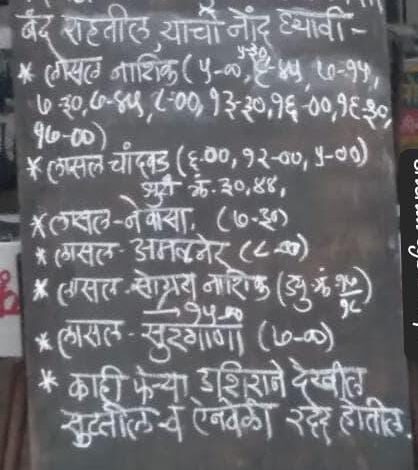 बंद राहतील, याची नोंद घ्यावी -
* लासल नाशिक (५-००, ५-३०, ६-४५, ७-१५,
७-३०, ७-४५, ८-००, १३-३०, १६-००, १६-३०,
१७-००)
* लासल चांदवड (६-००, १२-००, ५-००)
क्रं. ३०, ४४,
* लासल - नेवासा, (७-३०)
* लासल - अमळनेर (८-००)
* लासल - नाशिक (ड्यु क्रं १७/१८)
* लासल - सुरगाणा (७-००)
* काही फेऱ्या उशिराने देखील
सुटतील व ऐनवेळी रद्द होतील.